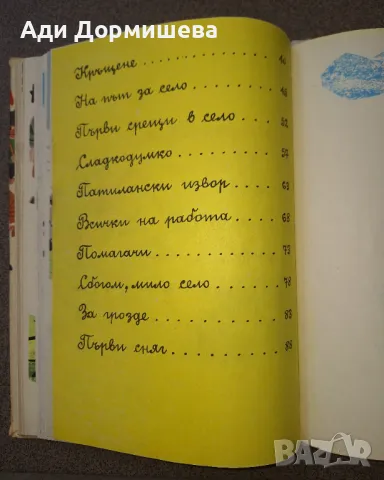 Ади Дормишева
Кръщене . . . . . . . . . . . . .
На път за село . . . . . . . .
Първи срещи в село . . . .
Сладкодумко . . . . . . . . . .
Патилански извор . . . . . . 63
Всички на работа . . . . . . . 68
Помагачи . . . . . . . . . . . . 73
Сбогом, мило село . . . . . 78
За грозде . . . . . . . . . . . . 83
Първи сняг . . . . . . . . . . . 88
BAZAR